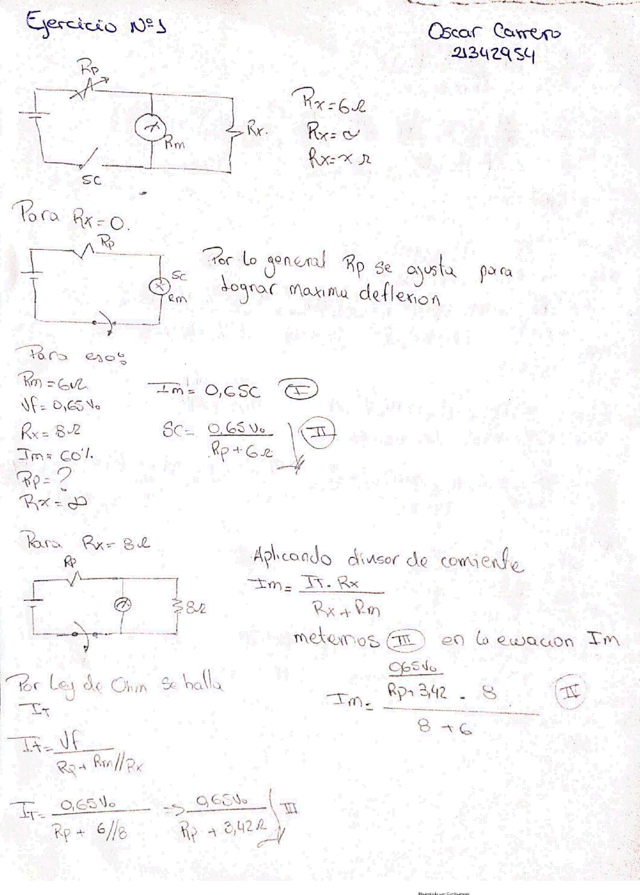 Ejercicio Nº1
Oscar Carrero
21342954
Rp
Rm
Rx.
SC
Rx=6Ω
Rx=∞
Rx=x Ω
Para Rx=0.
Rp
SC
Rm
Por lo general Rp se ajusta para
lograr maxima deflexion
Para eso:
Rm=6Ω
Vf=0,65Vo
Rx=8Ω
Im=60%
Rp=?
Rx=∞
Im=0,6SC I
SC= 0,65Vo / Rp+6Ω II
Para Rx=8Ω
Rp
8Ω
Aplicando divisor de corriente
Im= IT·Rx / Rx+Rm
metemos III en la ecuacion Im
Im= 0,65Vo / Rp+3,42 · 8 / 8+6 IV
Por Ley de Ohm se halla
IT
IT= Vf / Rp+Rm//Rx
IT= 0,65Vo / Rp+6//8 => 0,65Vo / Rp+3,42Ω III